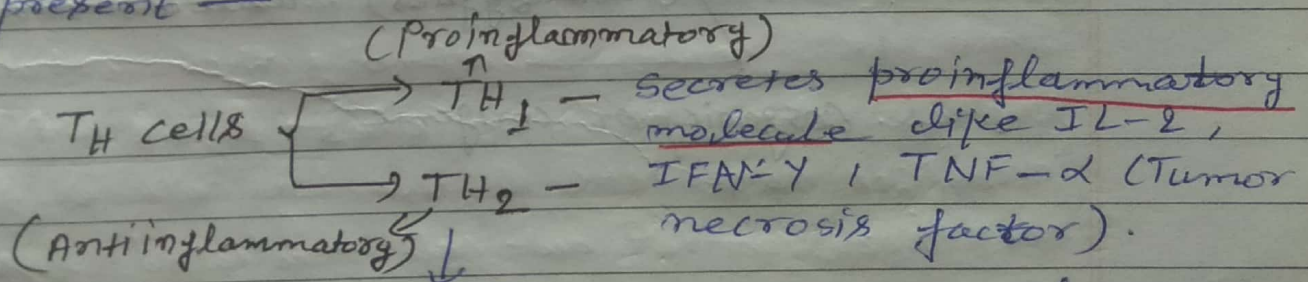 present
(Proinflammatory)
TH1 - secretes proinflammatory
TH cells molecule like IL-2,
TH2 - IFN-γ, TNF-α (Tumor
necrosis factor).
(Antiinflammatory)